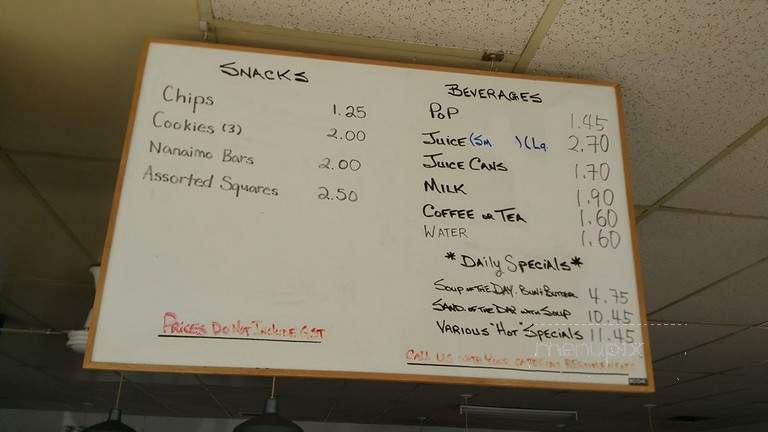 SNACKS
Chips 1.25
Cookies (3) 2.00
Nanaimo Bars 2.00
Assorted Squares 2.50
PRICES DO NOT INCLUDE GST
BEVERAGES
POP 1.45
JUICE (SM )(Lg. 2.70
JUICE CANS 1.70
MILK 1.90
COFFEE or TEA 1.60
WATER 1.60
*Daily Specials*
SOUP OF THE DAY. BUN & BUTTER 4.75
SAND. OF THE DAY WITH SOUP 10.45
VARIOUS "HOT" SPECIALS 11.45
menupix
CALL US WITH YOUR CATERING REQUIREMENTS